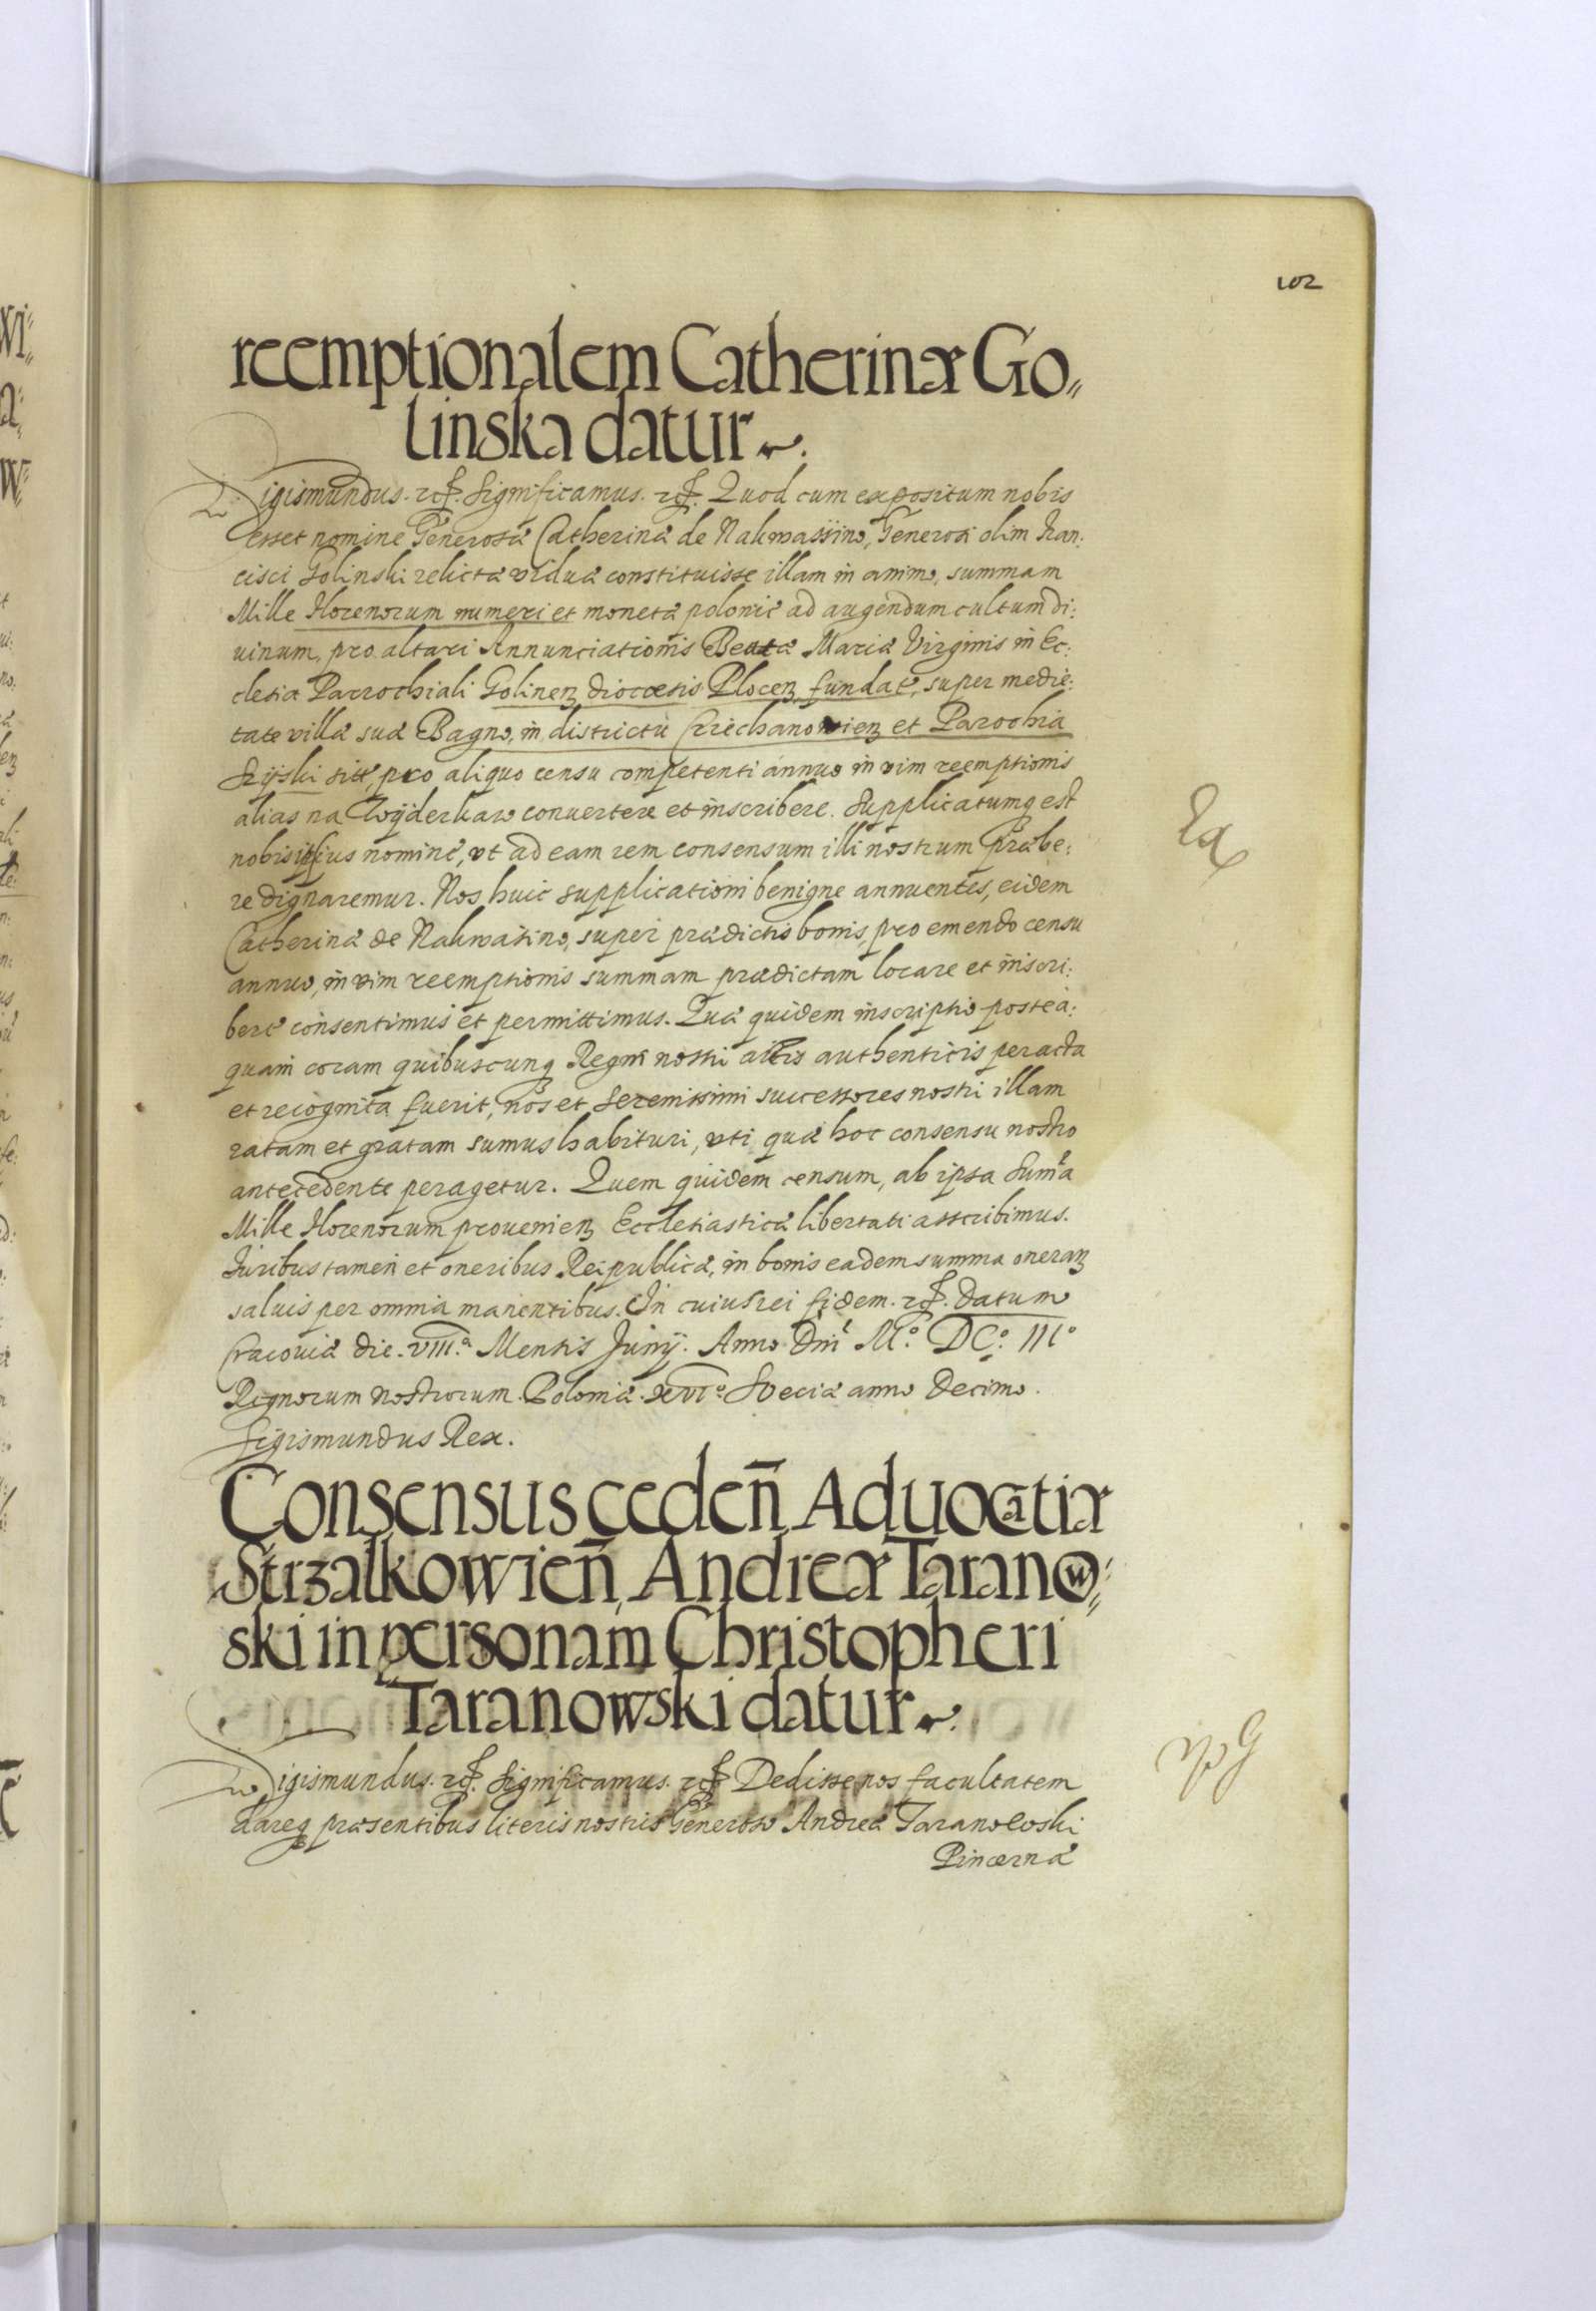 102
reemptionalem Catherinæ Go„
linska datur.
Sigismundus. etc. Significamus. etc. Quod cum expositum nobis
esset nomine Generosæ Catherinæ de Nakwassijno, Generosi olim Fran:
cisci Golinski relictæ viduæ constituisse illam in animo, summam
Mille Florenorum numeri et monetæ polonice ad augendum cultum di:
uinum, pro altari Annunciationis Beatæ Mariæ Virginis in Ec:
clesia Parrochiali Golinen diocesis Plocen fundatæ, super medie:
tate villæ suæ Bagno, in districtu Cziechanowien et Parochia
sitæ, pro aliquo censu competenti annuo in vim reemptionis
alias na Wyderkaw conuertere et inscribere. Supplicatumq est
nobis ipsius nomine, vt ad eam rem consensum illi nostrum præbe:
re dignaremur. Nos huic supplicationi benigne annuentes, eidem
Catherinæ de Nakwasino, super prædictis bonis, pro emendo censu
annuo, in vim reemptionis summam prædictam locare et inscri:
bere consentimus et permittimus. Quæ quidem inscriptio postea:
quam coram quibuscunq Regni nostri actis authenticis peracta
et recognita fuerit, nos et Serenissimi successores nostri illam
ratam et gratam sumus habituri, vti quæ hoc consensu nostro
antecedente peragetur. Quem quidem censum, ab ipsa Suma
Mille Florenorum prouenien Ecclesiasticæ libertati asscribimus.
Juribus tamen et oneribus Reipublicæ, in bonis eadem summa oneran
saluis per omnia manentibus. In cuius rei fidem. etc. Datum
Cracouiæ die. VIII.a Mensis Junij. Anno Dni Mº. DCº. IIIº
Regnorum nostrorum. Poloniæ. XVIº. Sveciæ anno Decimo.
Sigismundus Rex.
Consensus ceden̄ Aduocatiæ
Strzalkowien̄, Andreæ Taranow„
ski in personam Christopheri
Taranowski datur.
Sigismundus. etc. Significamus. etc. Dedisse nos facultatem
dareq præsentibus literis nostris Generoso Andreæ Taranowski
Pincernæ